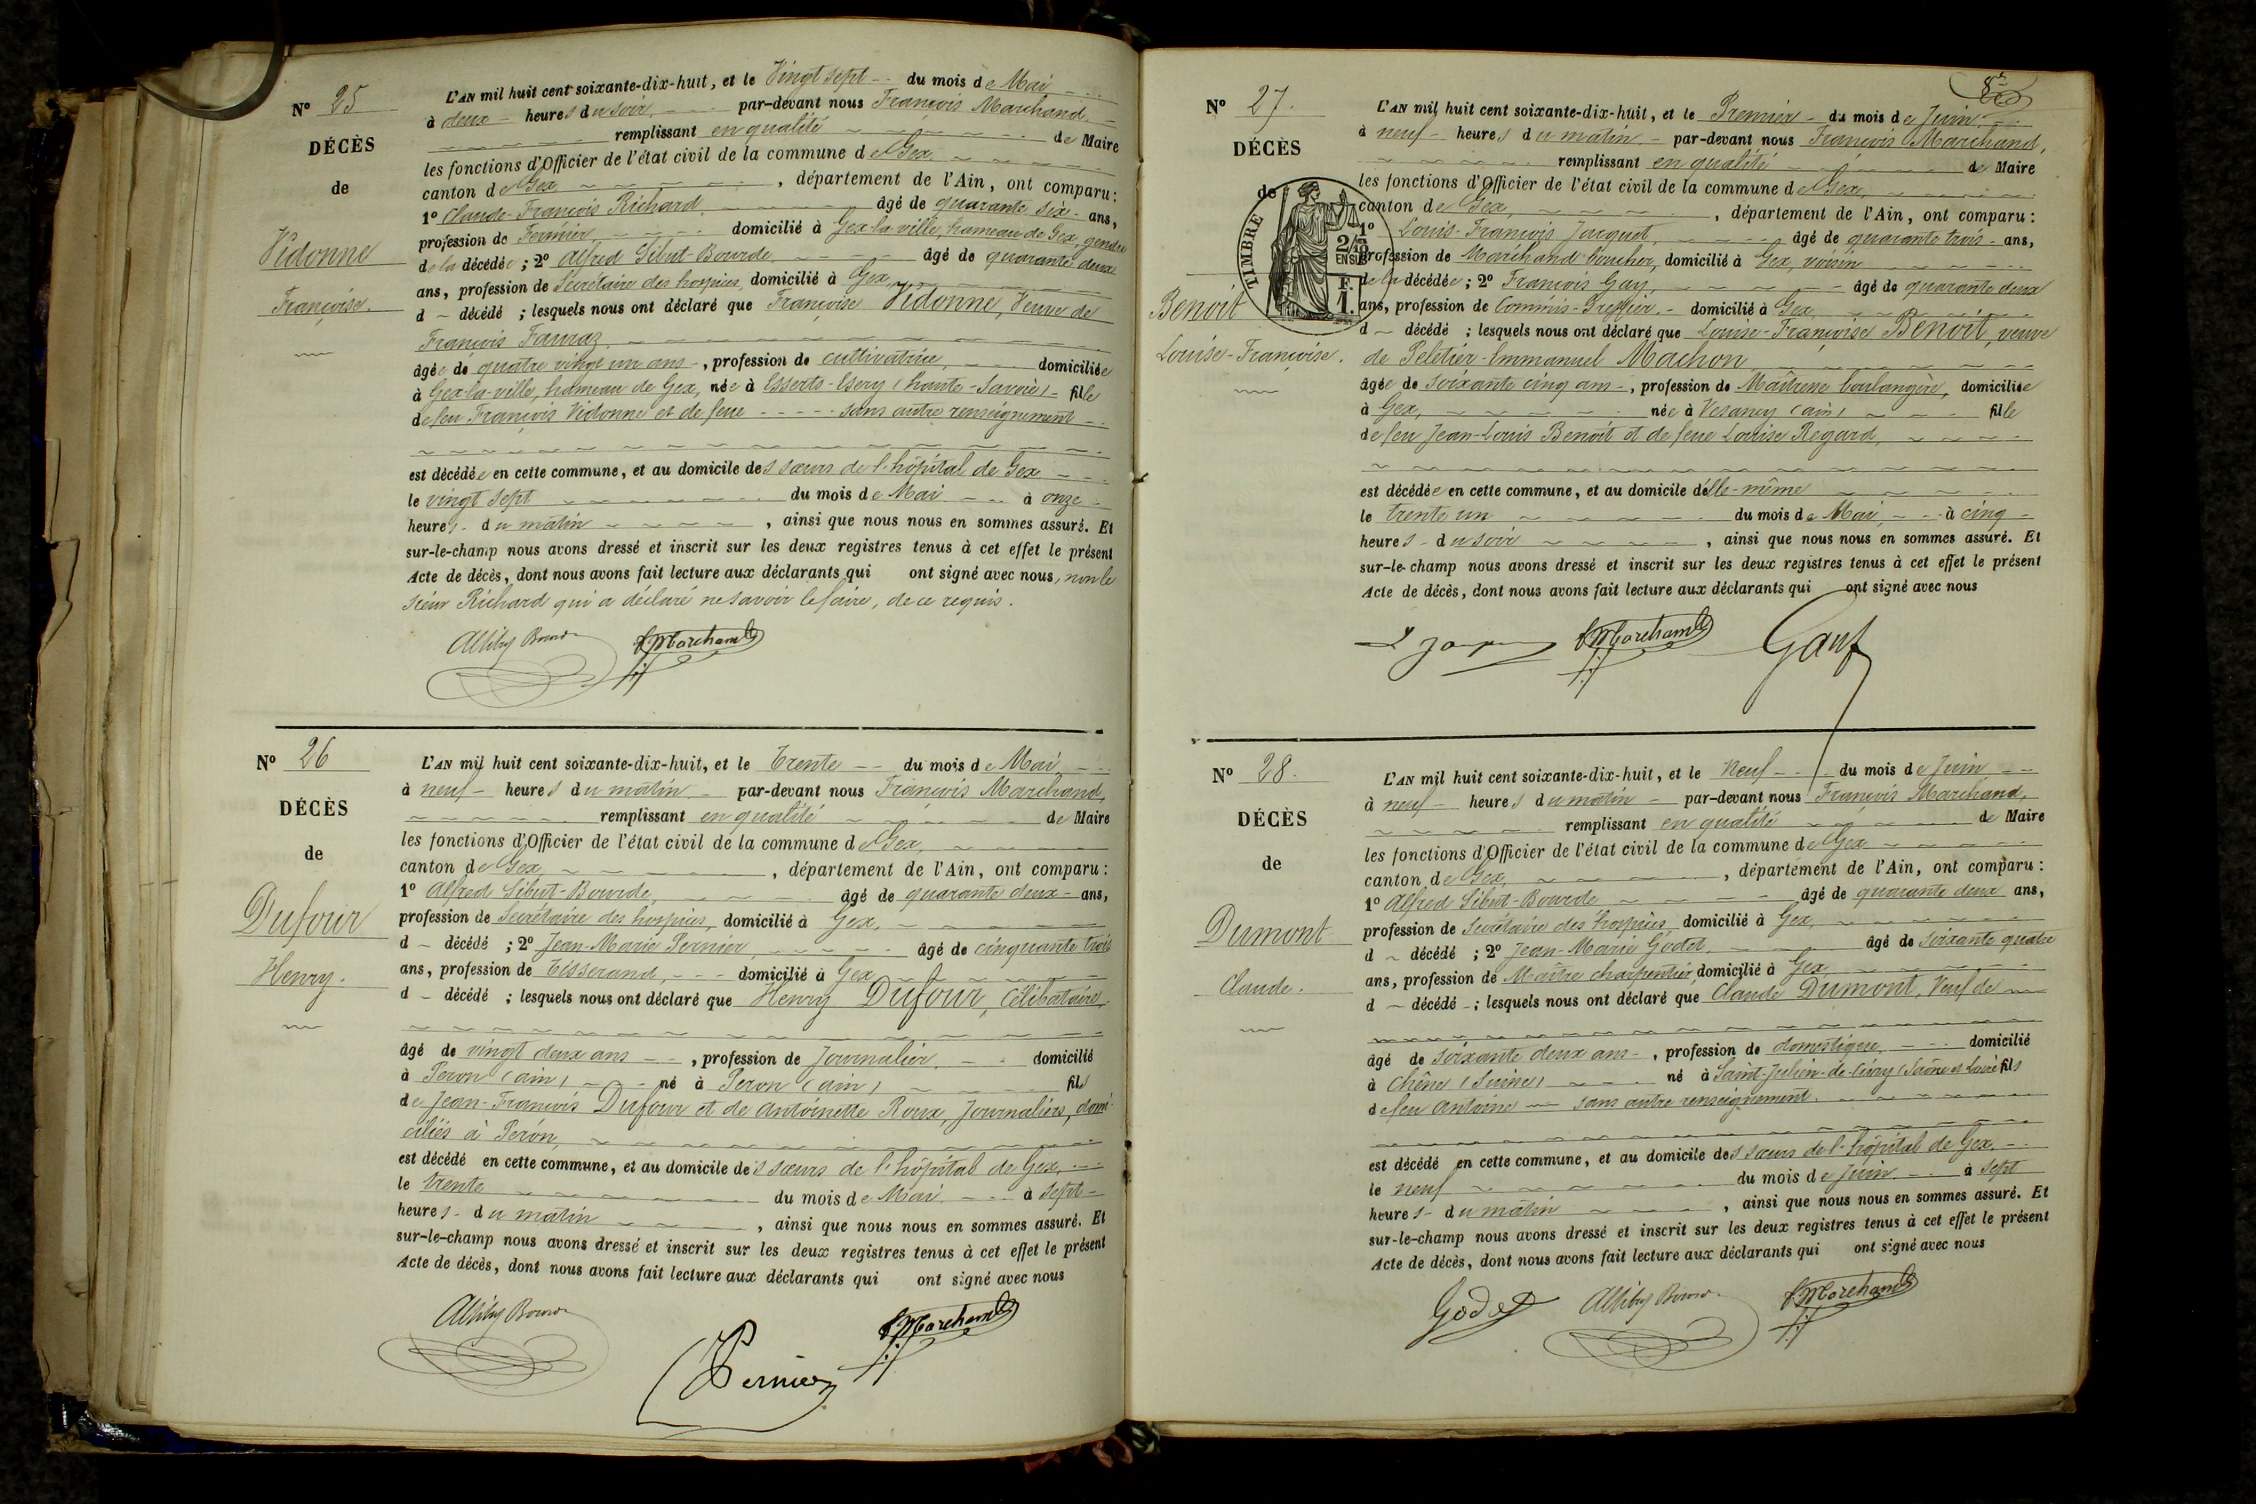 N° 25
DÉCÈS
de
Vidonne
Françoise.
L'AN mil huit cent soixante-dix-huit, et le Vingt sept -- du mois de Mai
à deux - heures du soir, - - par-devant nous François Marchand,
remplissant en qualité de Maire
les fonctions d'Officier de l'état civil de la commune de Gex,
canton de Gex, département de l'Ain, ont comparu :
1° Claude-François Richard, âgé de quarante six - ans,
profession de Fermier domicilié à Gex-la-ville, hameau de Gex, gendre
de la décédée ; 2° Alfred Sibut-Bourde, âgé de quarante deux
ans, profession de Secrétaire des hospices, domicilié à Gex,
d - décédé ; lesquels nous ont déclaré que Françoise Vidonne, Veuve de
François Favraz,
âgée de quatre vingt un ans -, profession de cultivatrice, domiciliée
à Gex-la-ville, hameau de Gex, née à Esserts-Esery (haute-Savoie) - fille
de feu François Vidonne et de feue - - - - - sans autre renseignement - -
est décédée en cette commune, et au domicile des sœurs de l'hôpital de Gex
le vingt sept du mois de Mai - - à onze -
heures - du matin, ainsi que nous nous en sommes assuré. Et
sur-le-champ nous avons dressé et inscrit sur les deux registres tenus à cet effet le présent
Acte de décès, dont nous avons fait lecture aux déclarants qui ont signé avec nous, non le
sieur Richard qui a déclaré ne savoir le faire, de ce requis.
F Marchand
N° 26
DÉCÈS
de
Dufour
Henry.
L'AN mil huit cent soixante-dix-huit, et le Trente -- du mois de Mai
à neuf - heures du matin - par-devant nous François Marchand,
remplissant en qualité de Maire
les fonctions d'Officier de l'état civil de la commune de Gex,
canton de Gex, département de l'Ain, ont comparu :
1° Alfred Sibut-Bourde, âgé de quarante deux - ans,
profession de Secrétaire des hospices, domicilié à Gex,
d - décédé ; 2° Jean-Marie Pernier, âgé de cinquante trois
ans, profession de Tisserand, - - - domicilié à Gex
d - décédé ; lesquels nous ont déclaré que Henry Dufour, Célibataire,
âgé de vingt deux ans - -, profession de Journalier, - - domicilié
à Peron (ain) né à Peron (ain) fils
de Jean-François Dufour et de Antoinette Roux, Journaliers, domi-
ciliés à Peron,
est décédé en cette commune, et au domicile des sœurs de l'hôpital de Gex,
le trente du mois de Mai - - à sept -
heures - du matin, ainsi que nous nous en sommes assuré. Et
sur-le-champ nous avons dressé et inscrit sur les deux registres tenus à cet effet le présent
Acte de décès, dont nous avons fait lecture aux déclarants qui ont signé avec nous
F Marchand
Pernier
N° 27.
DÉCÈS
de
TIMBRE
2/10
EN SUS
F.
1.
Benoit
Louise-Françoise.
L'AN mil huit cent soixante-dix-huit, et le Premier - du mois de Juin
à neuf - heures du matin - par-devant nous François Marchand,
remplissant en qualité de Maire
les fonctions d'Officier de l'état civil de la commune de Gex,
canton de Gex, département de l'Ain, ont comparu :
1° Louis-François Jacquet, âgé de quarante trois - ans,
profession de Marchand boucher, domicilié à Gex, voisin
de la décédée ; 2° François Gay, âgé de quarante deux
ans, profession de Commis-Greffier, - domicilié à Gex,
d - décédé ; lesquels nous ont déclaré que Louise-Françoise Benoit, veuve
de Peletier-Emmanuel Machon
âgée de soixante cinq ans -, profession de Maîtresse boulangère, domiciliée
à Gex, née à Vesancy (ain) fille
de feu Jean-Louis Benoit et de feue Louise Regard,
est décédée en cette commune, et au domicile d'elle-même
le trente un du mois de Mai, - - à cinq -
heures - du soir, ainsi que nous nous en sommes assuré. Et
sur-le-champ nous avons dressé et inscrit sur les deux registres tenus à cet effet le présent
Acte de décès, dont nous avons fait lecture aux déclarants qui ont signé avec nous
F Marchand
N° 28.
DÉCÈS
de
Dumont
Claude.
L'AN mil huit cent soixante-dix-huit, et le Neuf - - du mois de Juin
à neuf - heures du matin - par-devant nous François Marchand,
remplissant en qualité de Maire
les fonctions d'Officier de l'état civil de la commune de Gex
canton de Gex, département de l'Ain, ont comparu :
1° Alfred Sibut-Bourde âgé de quarante deux ans,
profession de Secrétaire des hospices, domicilié à Gex,
d - décédé ; 2° Jean-Marie Godet, âgé de soixante quatre
ans, profession de Maître charpentier, domicilié à Gex,
d - décédé - ; lesquels nous ont déclaré que Claude Dumont, Veuf de
âgé de soixante deux ans -, profession de domestique, domicilié
à Chêne (Suisse) né à Saint-Julien-de-Civry (Saône et Loire) fils
de feu Antoine - sans autre renseignement.
est décédé en cette commune, et au domicile des sœurs de l'hôpital de Gex,
le neuf du mois de Juin - - à sept
heures - du matin, ainsi que nous nous en sommes assuré. Et
sur-le-champ nous avons dressé et inscrit sur les deux registres tenus à cet effet le présent
Acte de décès, dont nous avons fait lecture aux déclarants qui ont signé avec nous
Godet
F Marchand